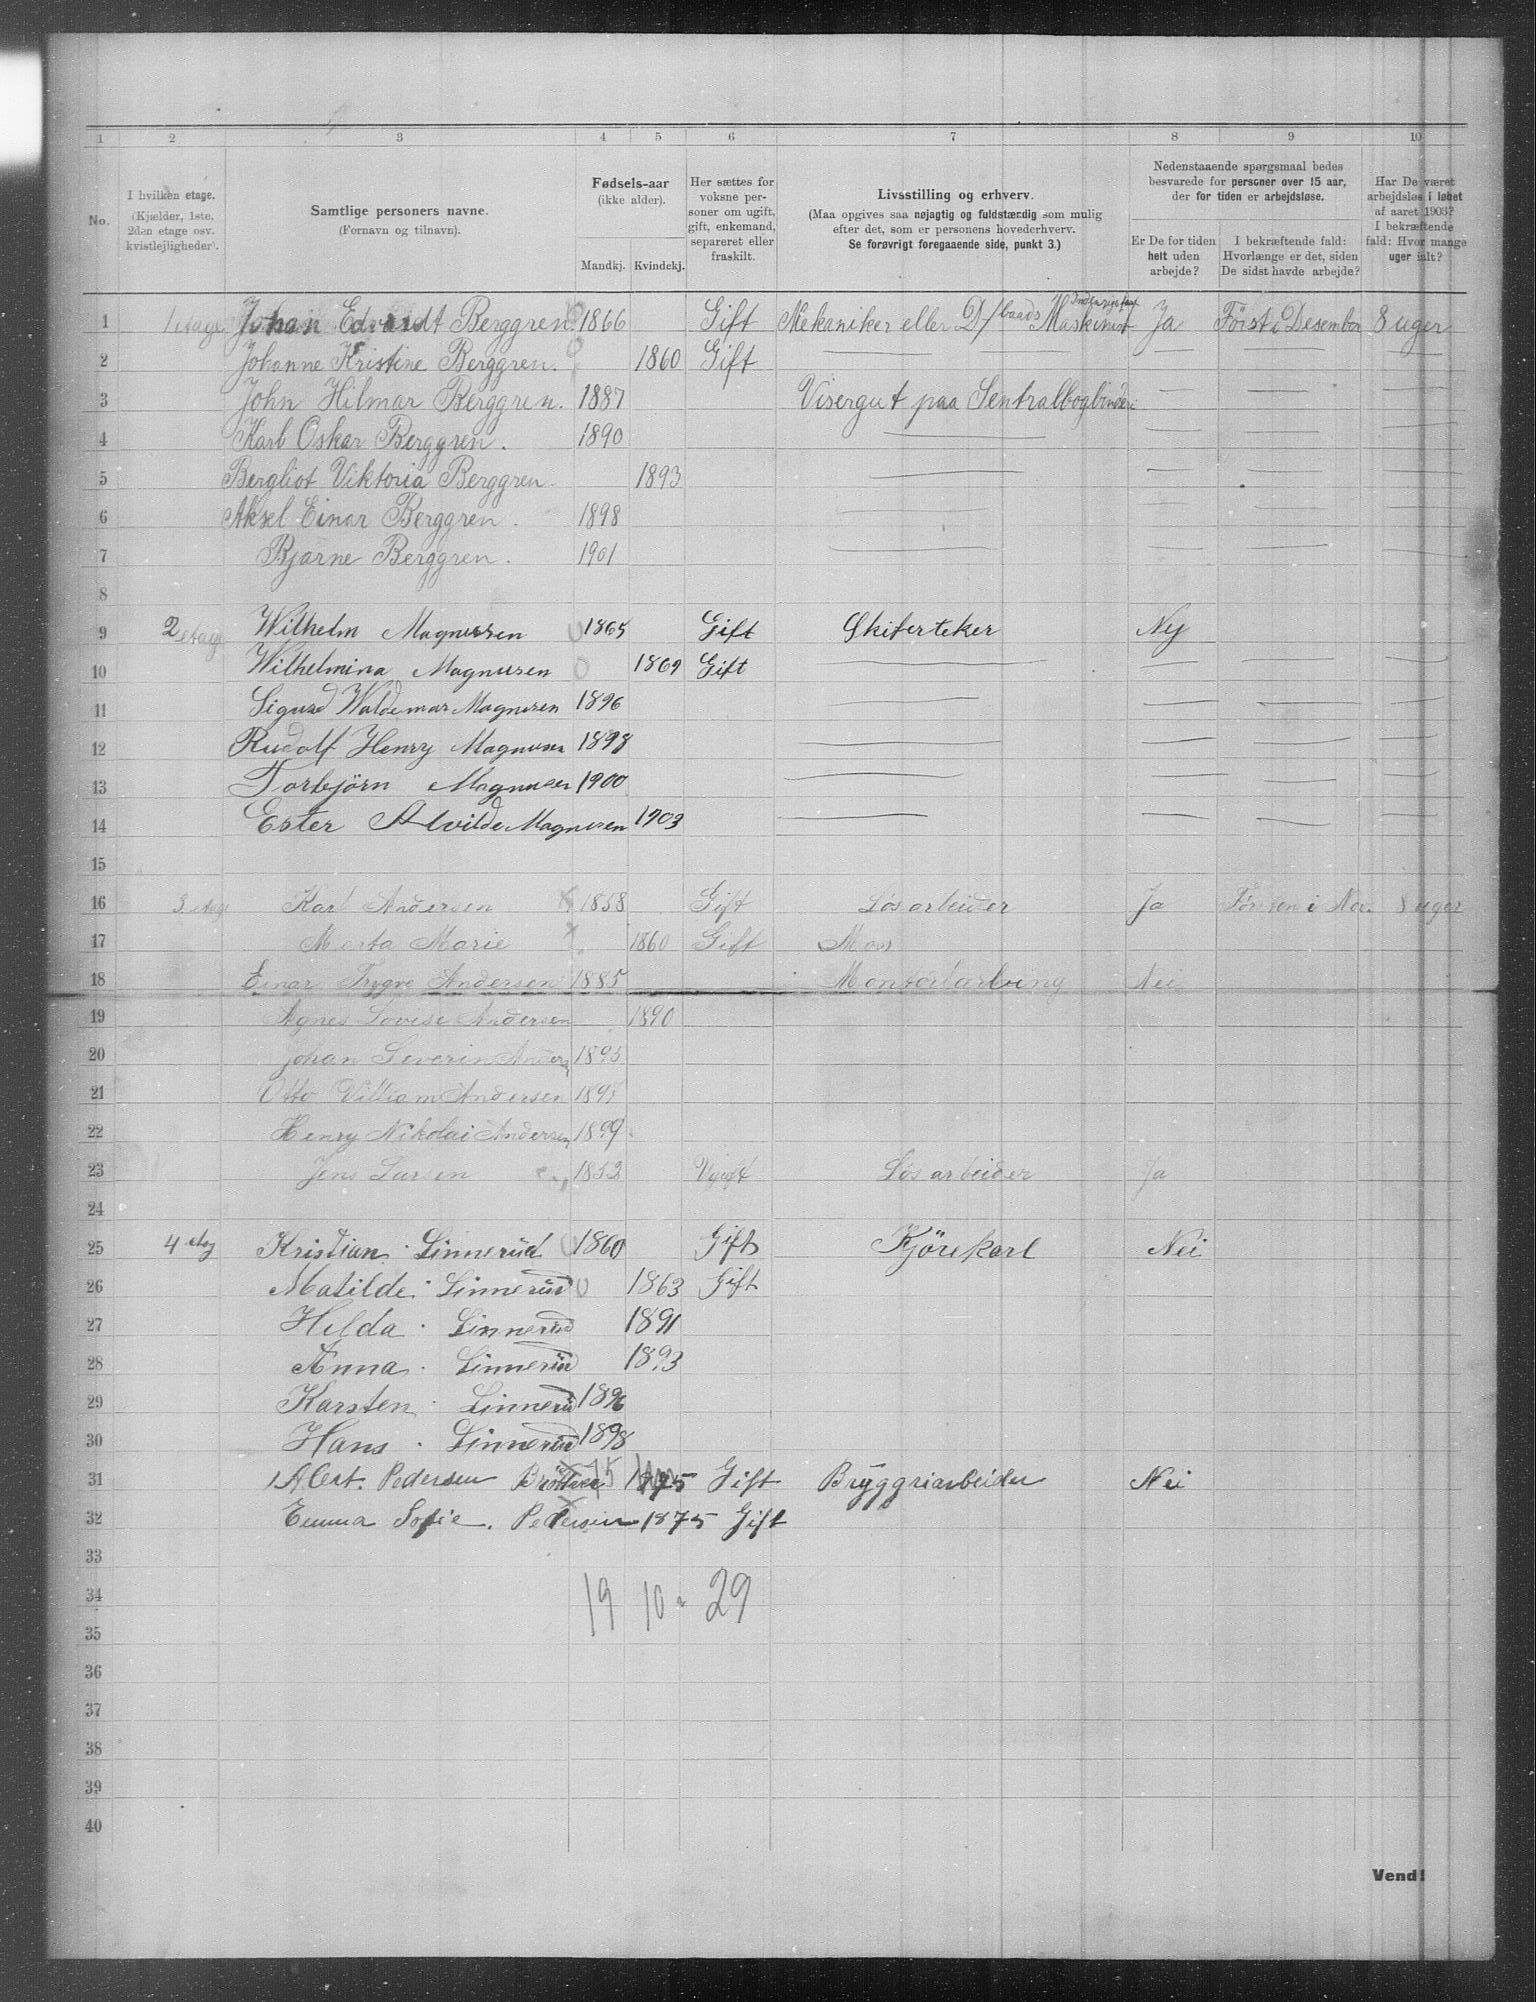 1 2 3 4 5 6 7 8 9 10
No.
I hvilken etage. (Kjælder, 1ste, 2den etage osv. kvistlejligheder).
Samtlige personers navne. (Fornavn og tilnavn).
Fødsels-aar (ikke alder).
Mandkj. Kvindekj.
Her sættes for voksne personer om ugift, gift, enkemand, separeret eller fraskilt.
Livsstilling og erhverv.
(Maa opgives saa nøjagtig og fuldstændig som mulig efter det, som er personens hovederhverv. Se forøvrigt foregaaende side, punkt 3.)
Nedenstaaende spørgsmaal bedes besvarede for personer over 15 aar, der for tiden er arbejdsløse.
Er De for tiden helt uden arbejde?
I bekræftende fald: Hvorlænge er det, siden De sidst havde arbejde?
Har De været arbejdsløs i løbet af aaret 1903? I bekræftende fald: Hvor mange uger ialt?
1 1 etage Johan Edvardt Berggren. 1866 Gift Mekaniker eller D/baads Maskinist Ja Först i Desember 8 uger
2 Johanne Kristine Berggren. 1860 Gift
3 John Hilmar Berggren. 1887 Visergut paa Sentralbogbinderi
4 Karl Oskar Berggren. 1890
5 Bergliot Viktoria Berggren. 1893
6 Aksel Einar Berggren. 1898
7 Bjarne Berggren. 1901
8
9 2 etage Wilhelm Magnussen 1865 Gift Skiferteker Ny
10 Wilhelmina Magnusen 1869 Gift
11 Sigurd Waldemar Magnusen 1896
12 Rudolf Henry Magnusen 1898
13 Torbjörn Magnusen 1900
14 Ester Alvilde Magnusen 1903
15
16 3 etage Karl Andersen 1858 Gift Løsarbeider Ja i Nov. 8 uger
17 Marta Marie 1860 Gift Mor
18 Einar Trygve Andersen 1885 Nei
19 Agnes Lovise Andersen 1890
20 Johan Severin Anders 1893
21 Otto Villiam Andersen
22 Henry Nikolai Andersen 1899
23 Jens Larsen 1853 Ugift Løsarbeider Ja
24
25 4 etg Kristian Linnerud 1860 Gift Kjörekarl Nei
26 Matilde Linnerud 1863 Gift
27 Hilda Linnerud 1891
28 Anna Linnerud 1893
29 Karsten Linnerud 1896
30 Hans Linnerud 1898
31 Albert. Pedersen 75 1875 Gift Bryggriarbeider Nei
32 Emma Sofie. Pedersen 1875 Gift
33
34 19 10 29
35
36
37
38
39
40
Vend!